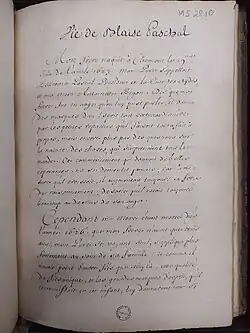 MS 2010
Vie de Blaise Paschal
Mon frere naquit à Clermont le 19e
Juin de l'année 1623. Mon Pere s'appelloit
Pascal President en la Cour des Aydes,
ma mere Antoinette Begon. Des que mon
frere fut en age qu'on luy pust parler, il donna
des marques d'un esprit tout
par les petites reparties qu'il faisoit tout à fait à
propos, mais encore plus par les questions sur
la nature des choses qui surprenoient tout le
monde. Ce commencement qui donnoit de belles
esperances ne se dementit jamais, car à me-
sure qu'il croissoit, il augmentoit toujours en force
de raisonnement, de sorte qu'il estoit toujours
beaucoup au dessus de son age.
Cependant ma mere étant morte dès
l'année 1626, que mon frere n'avoit que trois
ans, mon Pere se voyant seul, s'appliqua plus
fortement au soin de sa famille, et comme il
n'avoit point d'autre fils que celuy là, cette qualité
de fils unique, et les grandes marques d'esprit qu'il
reconnut en cet enfant, luy donnerent